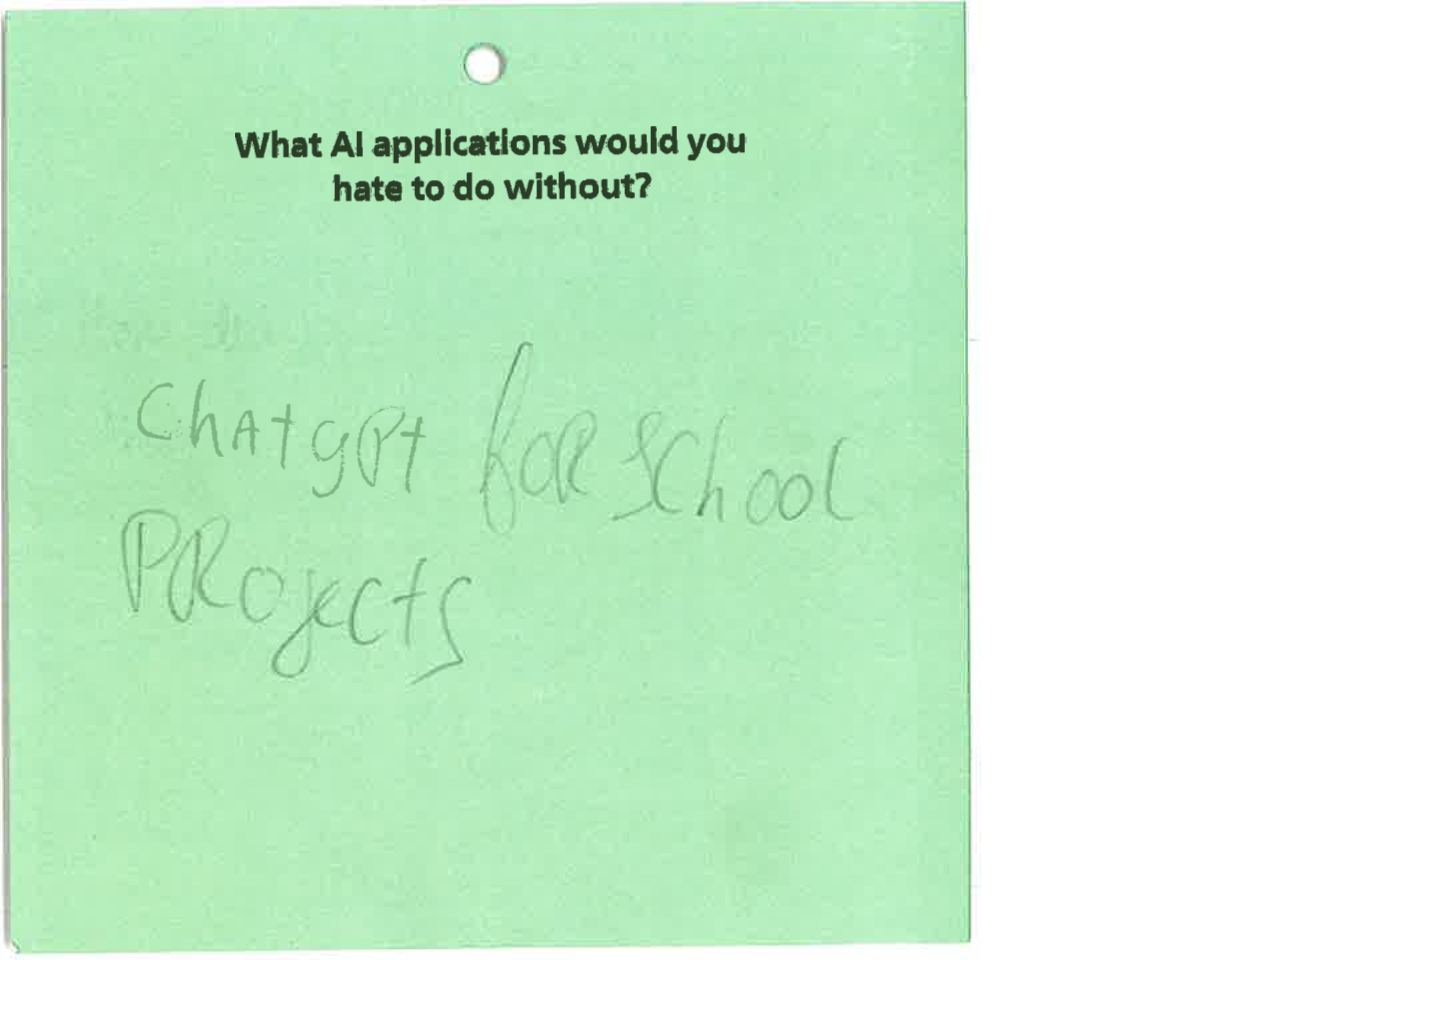 What AI applications would you
hate to do without?
ChAtgPt foR School
PRojects